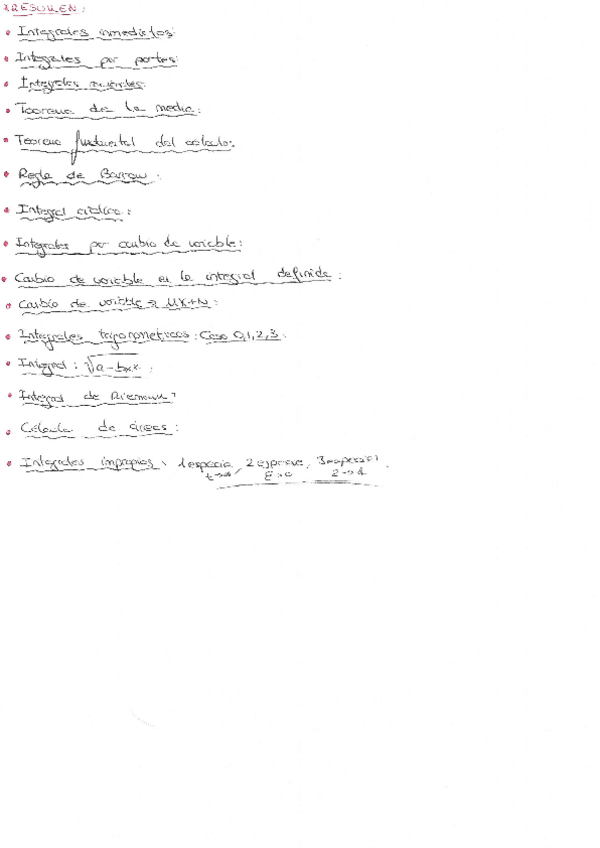 RESUMEN:
• Integrales inmediatas:
• Integrales por partes:
• Integrales
• Teorema de la media:
• Teorema fundamental del calculo:
• Regla de Barrow:
• Integral cíclica:
• Integrales por cambio de variable:
• Cambio de variable en la integral definida:
• Cambio de variable
• Integrales trigonometricas: Caso 0,1,2,3.
• Integral:
• Integral de Riemann:
• Calculo de áreas:
• Integrales impropias: 1 especie, 2 especie, 3 especie